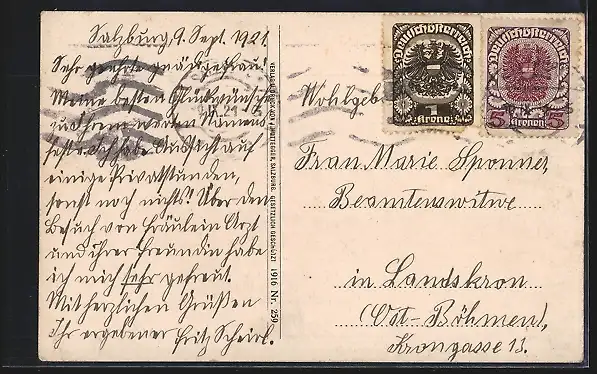 Salzburg, 9. Sept. 1921.
Sehr geehrte gnädige Frau!
Meine besten Glückwünsche
zu Ihrem werten Namens-
feste. Ich habe Aussicht auf
einige Privatstunden,
sonst noch nichts! Über den
Besuch von Fräulein Arzt
und ihrer Freundin habe
ich mich sehr gefreut.
Mit herzlichen Grüßen
Ihr ergebener Fritz Scheirl.
SALZBURG. GESETZLICH GESCHÜTZT 1916 Nr. 259
Deutschösterreich
1
Kronen
Deutschösterreich
5 5
Kronen
Wohlgeb
Frau Marie Sponner,
Beamtenswitwe
in Landskron
(Ost-Böhmen),
Krongasse 13.